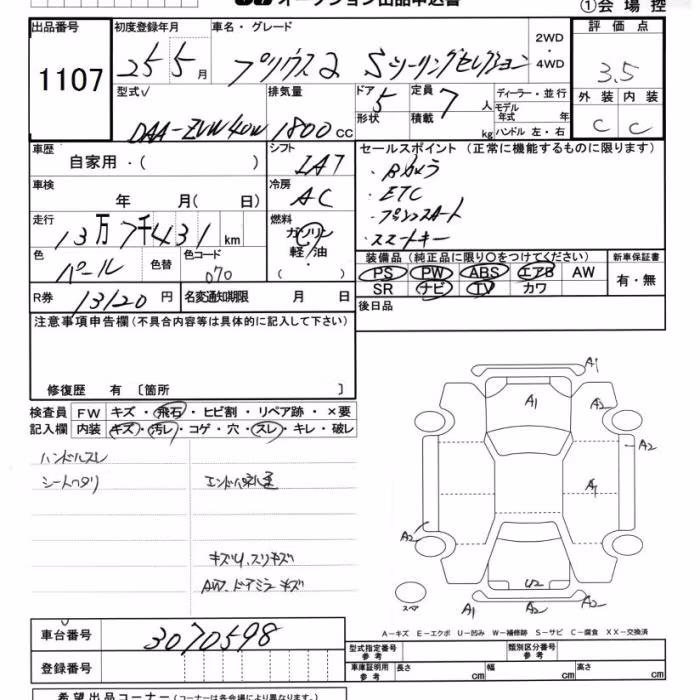 オークション出品申込書
①会場控
出品番号 1107
初度登録年月 25 5月
車名・グレード プリウスα Sツーリングセレクション
2WD・4WD
評価点 3.5
外装 C 内装 C
型式 DAA-ZVW40W
排気量 1800cc
ドア 5 形状
定員 7人 積載 kg
ディーラー・並行
モデル年式 年
ハンドル 左・右
車歴 自家用・( )
シフト IAT
セールスポイント (正常に機能するものに限ります)
・Bカメラ
・ETC
・プッシュスタート
・スマートキー
車検 年 月( 日)
冷房 AC
走行 13万7千431km
燃料 ガソリン 軽油 ( ・ )
色 パール 色替
色コード 070
装備品(純正品に限り〇をつけてください)
PS PW ABS エアB AW
SR ナビ TV カワ
新車保証書 有・無
R券 13120円
名変通知期限 月 日
後日品
注意事項申告欄(不具合内容等は具体的に記入して下さい)
修復歴 有 〔箇所 〕
検査員記入欄
FW キズ・飛石・ヒビ割・リペア跡・×要
内装 キズ・汚レ・コゲ・穴・スレ・キレ・破レ
ハンドルスレ
シートヘタリ
キズU、スリキズ
AW、ドアミラーキズ
A1
A1
A2
A2
A1
A2
U2
A1 A2 A2
スペア
A-キズ E-エクボ U-凹み W-補修跡 S-サビ C-腐食 XX-交換済
車台番号 3070598
登録番号
型式指定番号 参考
類別区分番号 参考
車庫証明用 参考 長さ cm 幅 cm 高さ cm
希望出品コーナー (コーナーは各会場により異なります。)